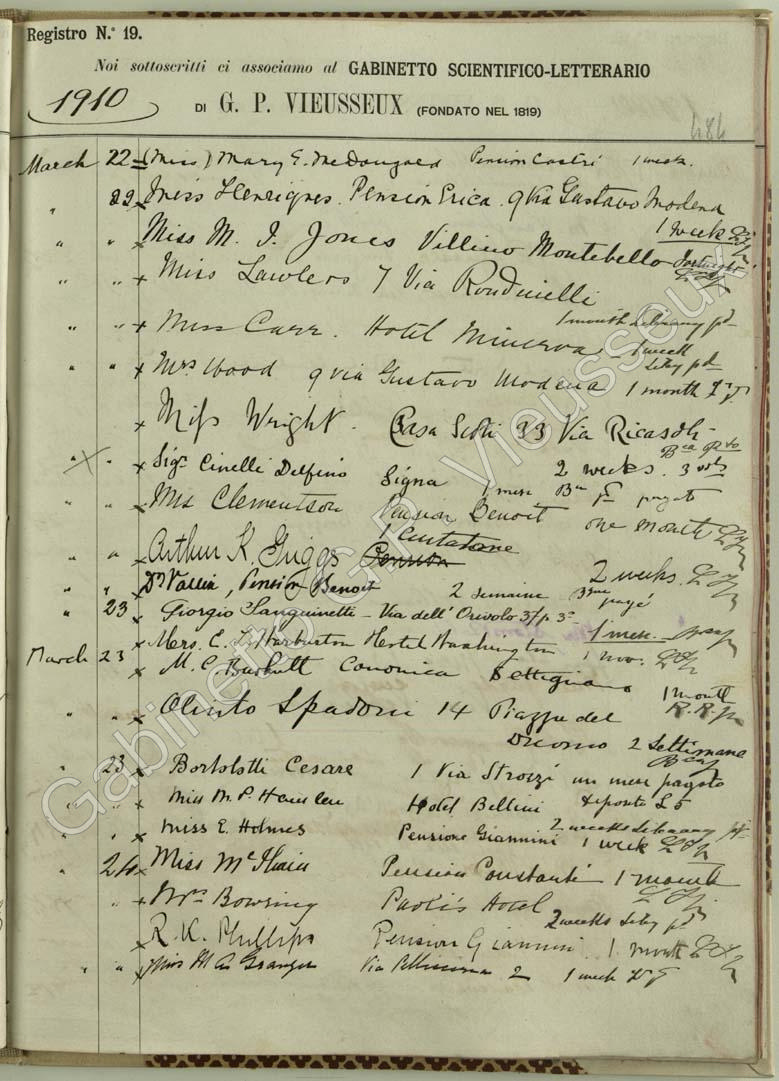 Registro N.º 19.
Noi sottoscritti ci associamo al GABINETTO SCIENTIFICO-LETTERARIO
1910
DI G. P. VIEUSSEUX (FONDATO NEL 1819)
484
March 22 (Miss) Mary E. McDougald Pension Castri 1 week
" 22 x Miss Henriques. Pension Erica. 9 Via Gustavo Modena
1 week
" " x Miss M. I. Jones Villino Montebello
" " x Miss Lawless 7 Via Rondinelli
1 month Library pd
" " x Miss Carr. Hotel Minerva 1 week
" " x Mrs Wood 9 via Gustavo Modena 1 month
x Miss Wright. Casa Scoti 33 Via Ricasoli
2 weeks. 3 vols
" x Sigr Cinelli Delfino Signa 1 mese pagato
" " x Mrs Clementson Pension Benoit one month
" " x Arthur K. Griggs Pension
2 weeks.
" " x Dr Vallin, Pension Benoit 2 semaine payé
" 23 x Giorgio Sanguinetti - Via dell' Orivolo 37 p 3º
1 mese
x Mrs. E. Warburton Hotel Washington 1 mo.
March 23 x M. C. Canonica Settignano 1 month
" " x Olinto Spadoni 14 Piazza del
Duomo 2 Settimane
" 23 x Bortolotti Cesare 1 Via Strozzi un mese pagato
" " x Miss M. P. Hotel Bellini deposito £5
2 weeks Library pd
" " x Miss E. Holmes Pensione Giannini 1 week
" 24 x Miss McIlvain Pension Constanti 1 month
" " x Mrs Bowring Paoli's Hotel
2 weeks Liby pd
x R. K. Phillips Pension Giannini 1 month
" " x Miss M A Granger Via 2 1 week
Gabinetto G.P. Vieusseux